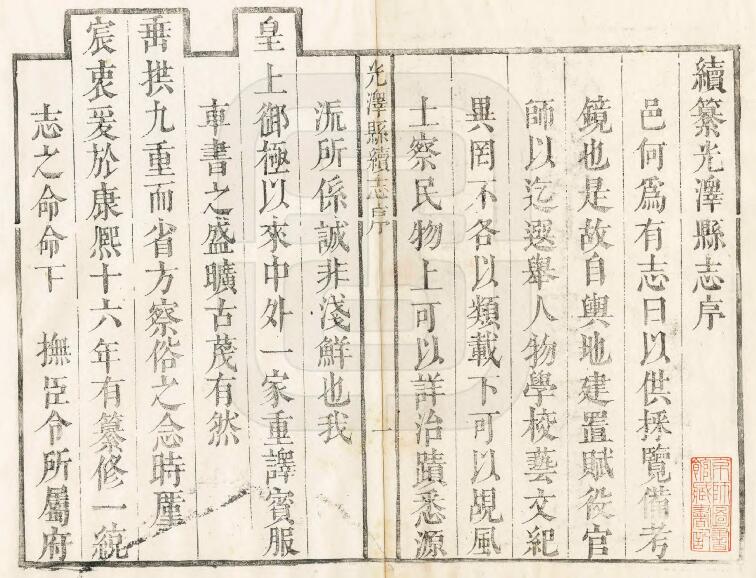 續纂光澤縣志序
邑何爲有志曰以供採覽備考
鏡也是故自輿地建置賦役官
師以迄選舉人物學校藝文紀
異罔不各以類載下可以覘風
土察民物上可以詳治蹟悉源
光澤縣續志序
一
派所係誠非淺鮮也我
皇上御極以來中外一家重譯賓服
車書之盛曠古茂有然
垂拱九重而省方察俗之念時厪
宸衷爰於康熙十六年有纂修一統
志之命命下 撫臣令所屬府